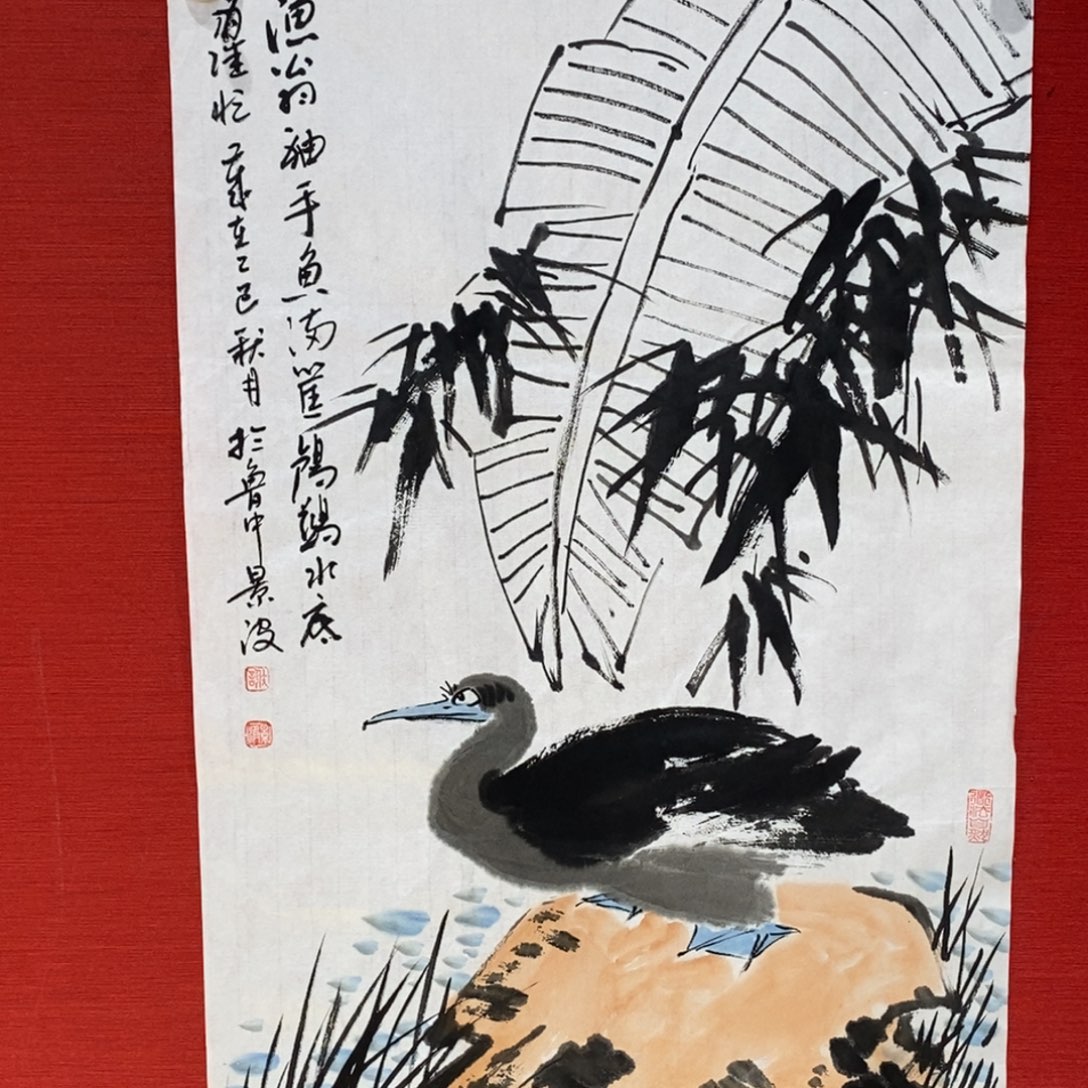 渔翁袖手鱼满筐鸬鹚水底
谁忙 岁在乙巳秋月於鲁中景波